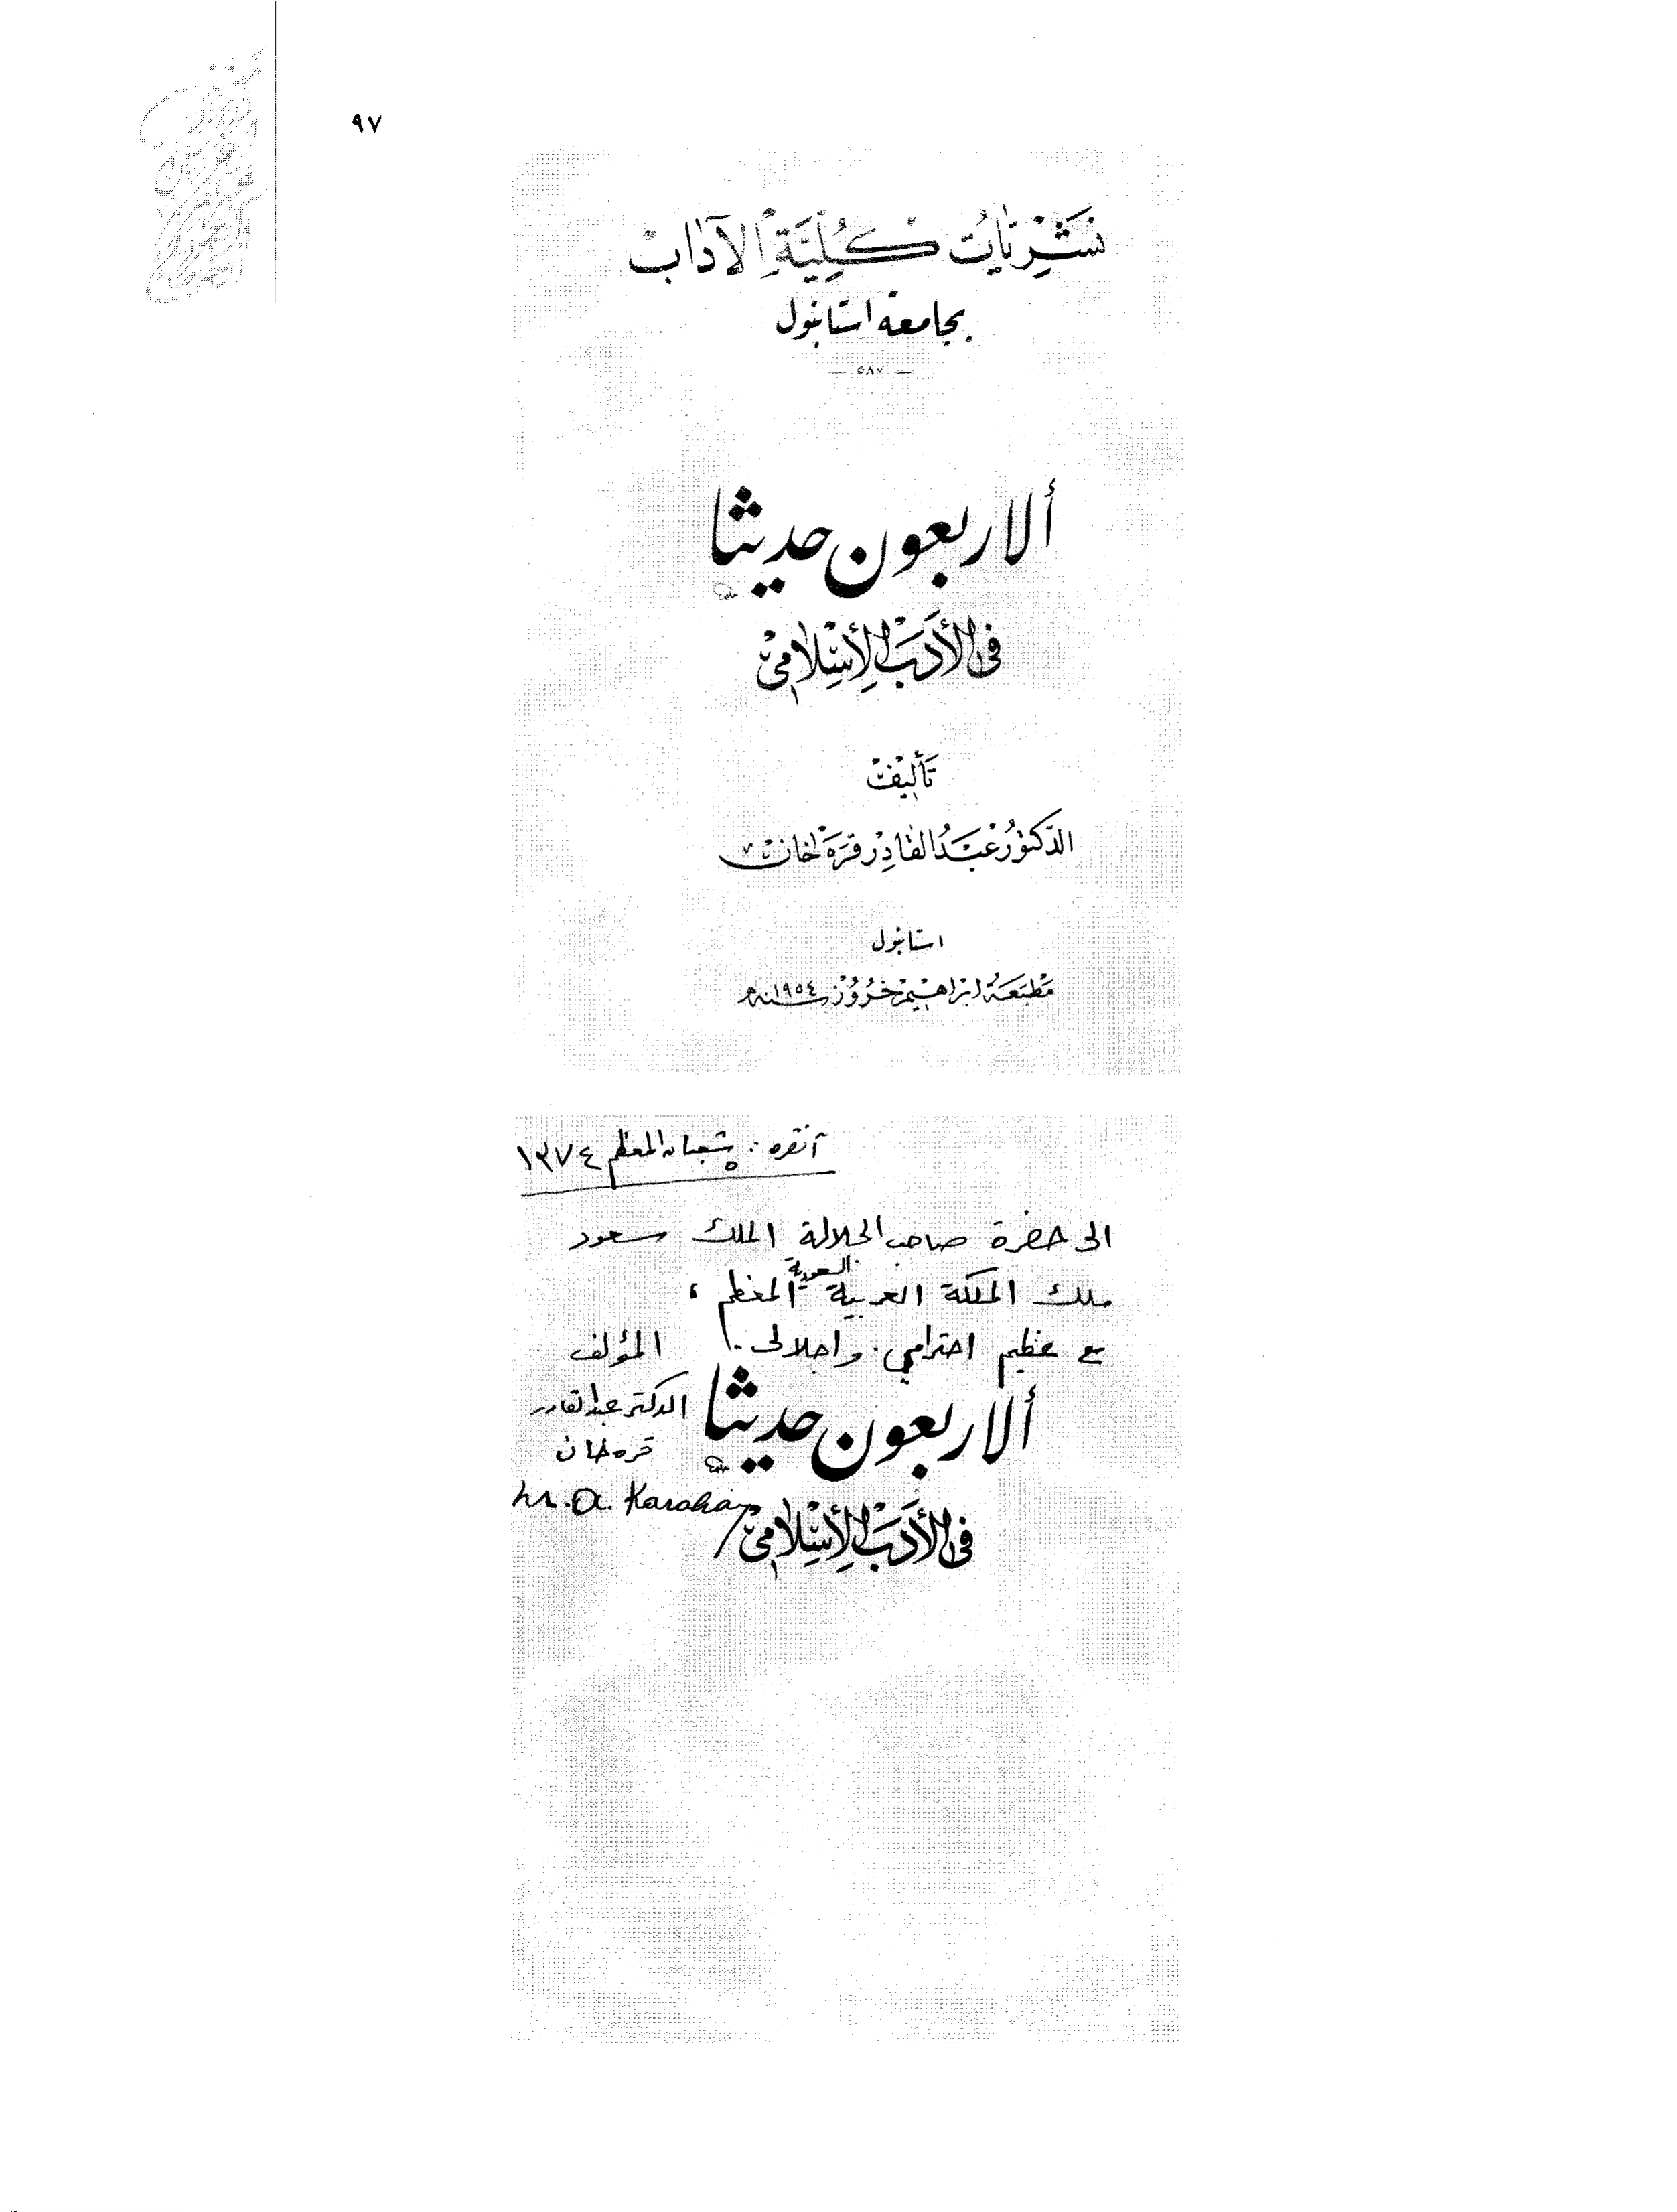 ٩٧
نَشْرِيَاتُ كُلِيَّةِ الآدَابْ
بجامعة استانبول
— ٥٨٧ —
ألاربعون حديثا
فى الأَدَبْ الإِسْلَامِىْ
تَأْلِيفْ
الدّكتُورْ عَبْدُ القَادِرْ قَرَهْ خَانْ
استانبول
مَطْبَعَةُ ابْرَاهِيمْ خُرُوزْ سنه ١٩٥٤م
آنقره : شعبان المعظم ١٣٧٤
الى حضرة صاحب الجلالة الملك سعود
ملك المملكة العربية السعودية المعظم ،
مع عظيم احترامي واجلالى . المؤلف
الدكتر عبدالقادر
قره خان
ألاربعون حديثا
A. Karahan
فى الأَدَبْ الإِسْلَامِىْ